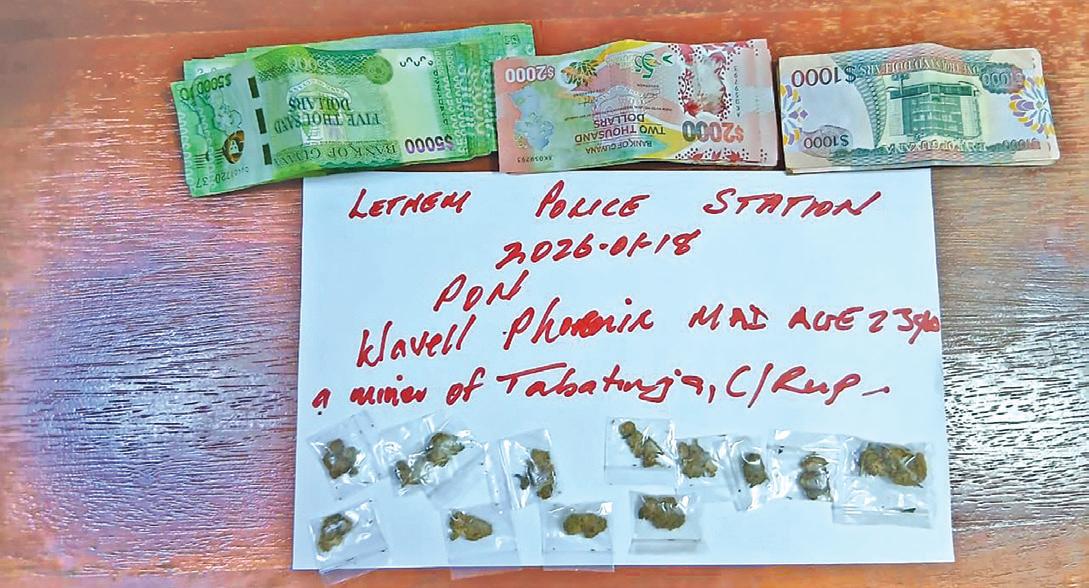 $5000
FIVE THOUSAND
DOLLARS
BANK OF
$5000
$2000
TWO THOUSAND
DOLLARS
BANK OF GUYANA
$2000
$1000
ONE THOUSAND DOLLARS
$1000
LETHEM POLICE STATION
2026-01-18
PON
Wavell Phoenix M A I AGE 23yo
a miner of Tabatinga, C/Rup.